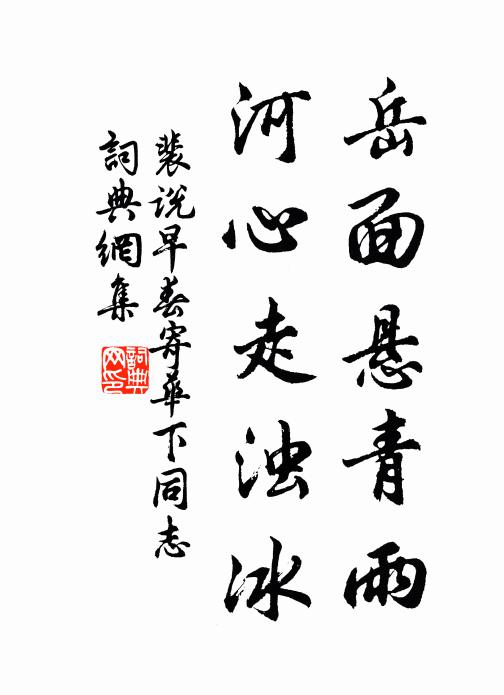 岳面悬青雨
河心走浊冰
裴说早春寄華下同志
詞典網集
詞典網印